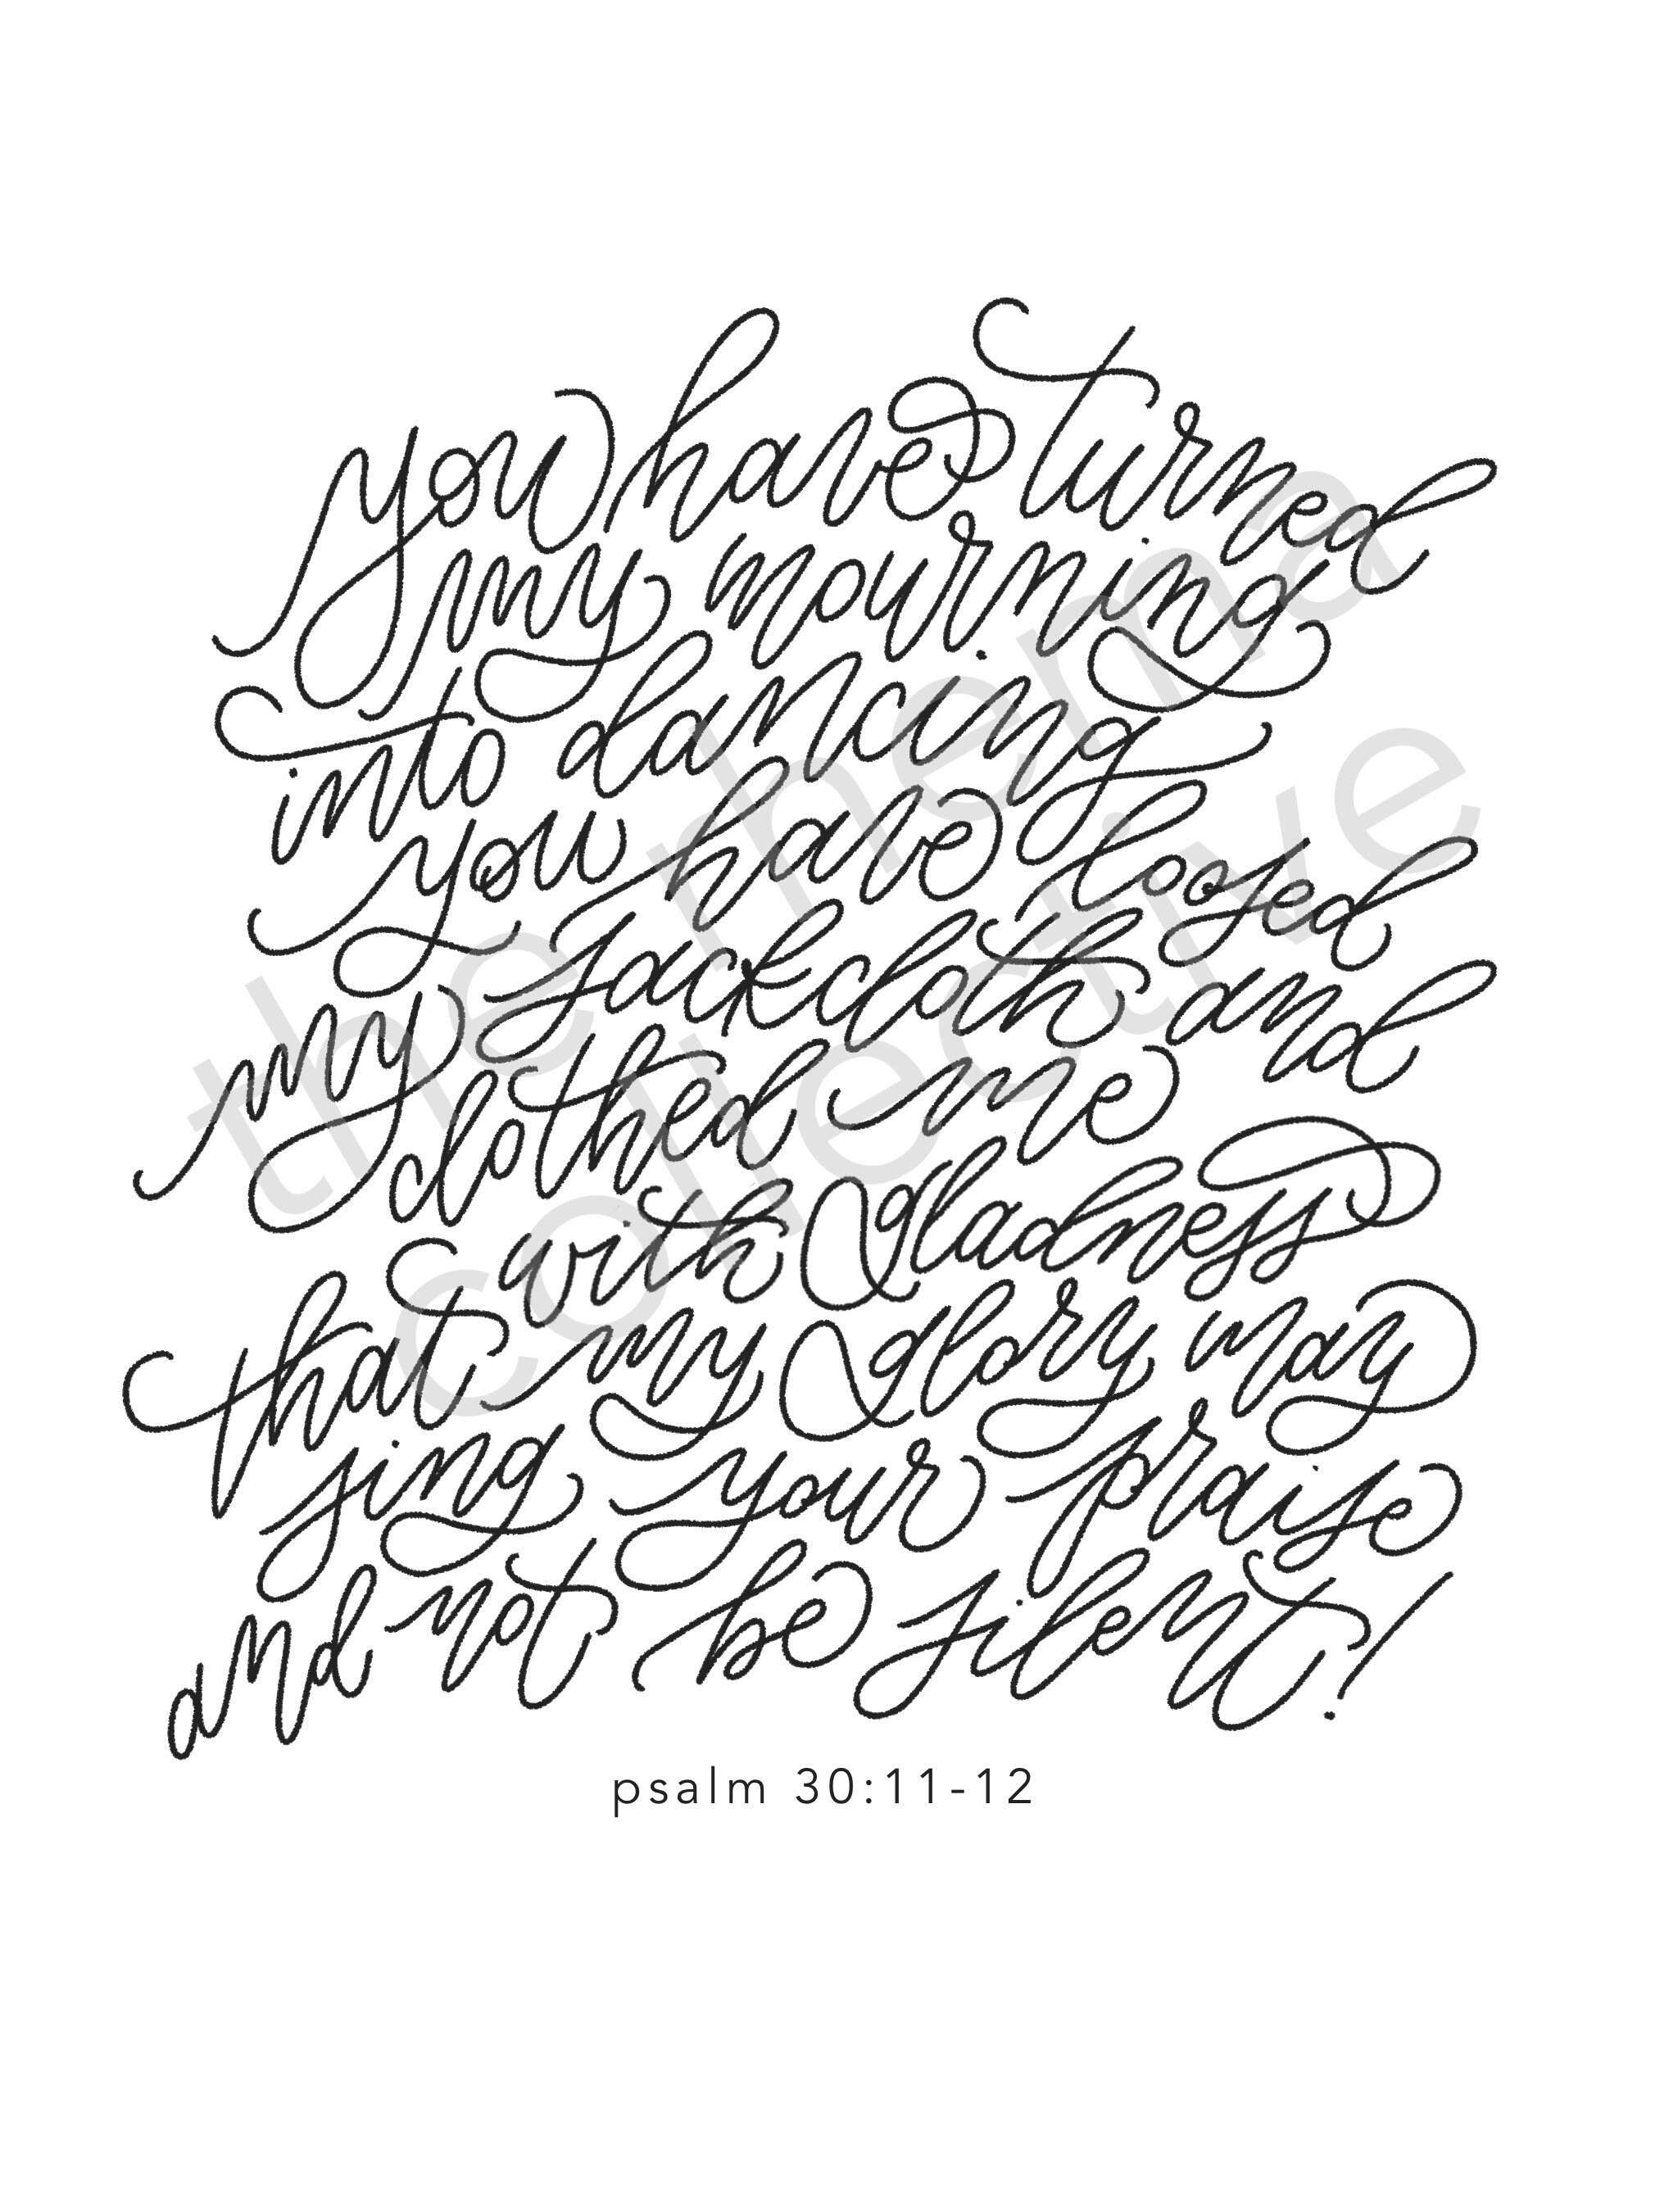 you have turned
my mourning
into dancing
you have loosed
my sackcloth and
clothed me
with gladness
that my glory may
sing your praise
and not be silent!
psalm 30:11-12
the hema
collective